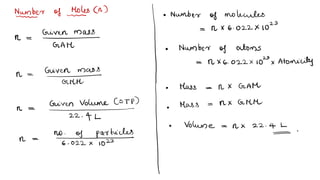 Number of Moles (n)
n = Given mass
GAM
n = Given mass
GMM
n = Given Volume (STP)
22.4 L
n = no. of particles
6.022 × 10²³
• Number of molecules
= n × 6.022 × 10²³
• Number of atoms
= n × 6.022 × 10²³ × Atomicity
• Mass = n × GAM
• Mass = n × GMM
• Volume = n × 22.4 L